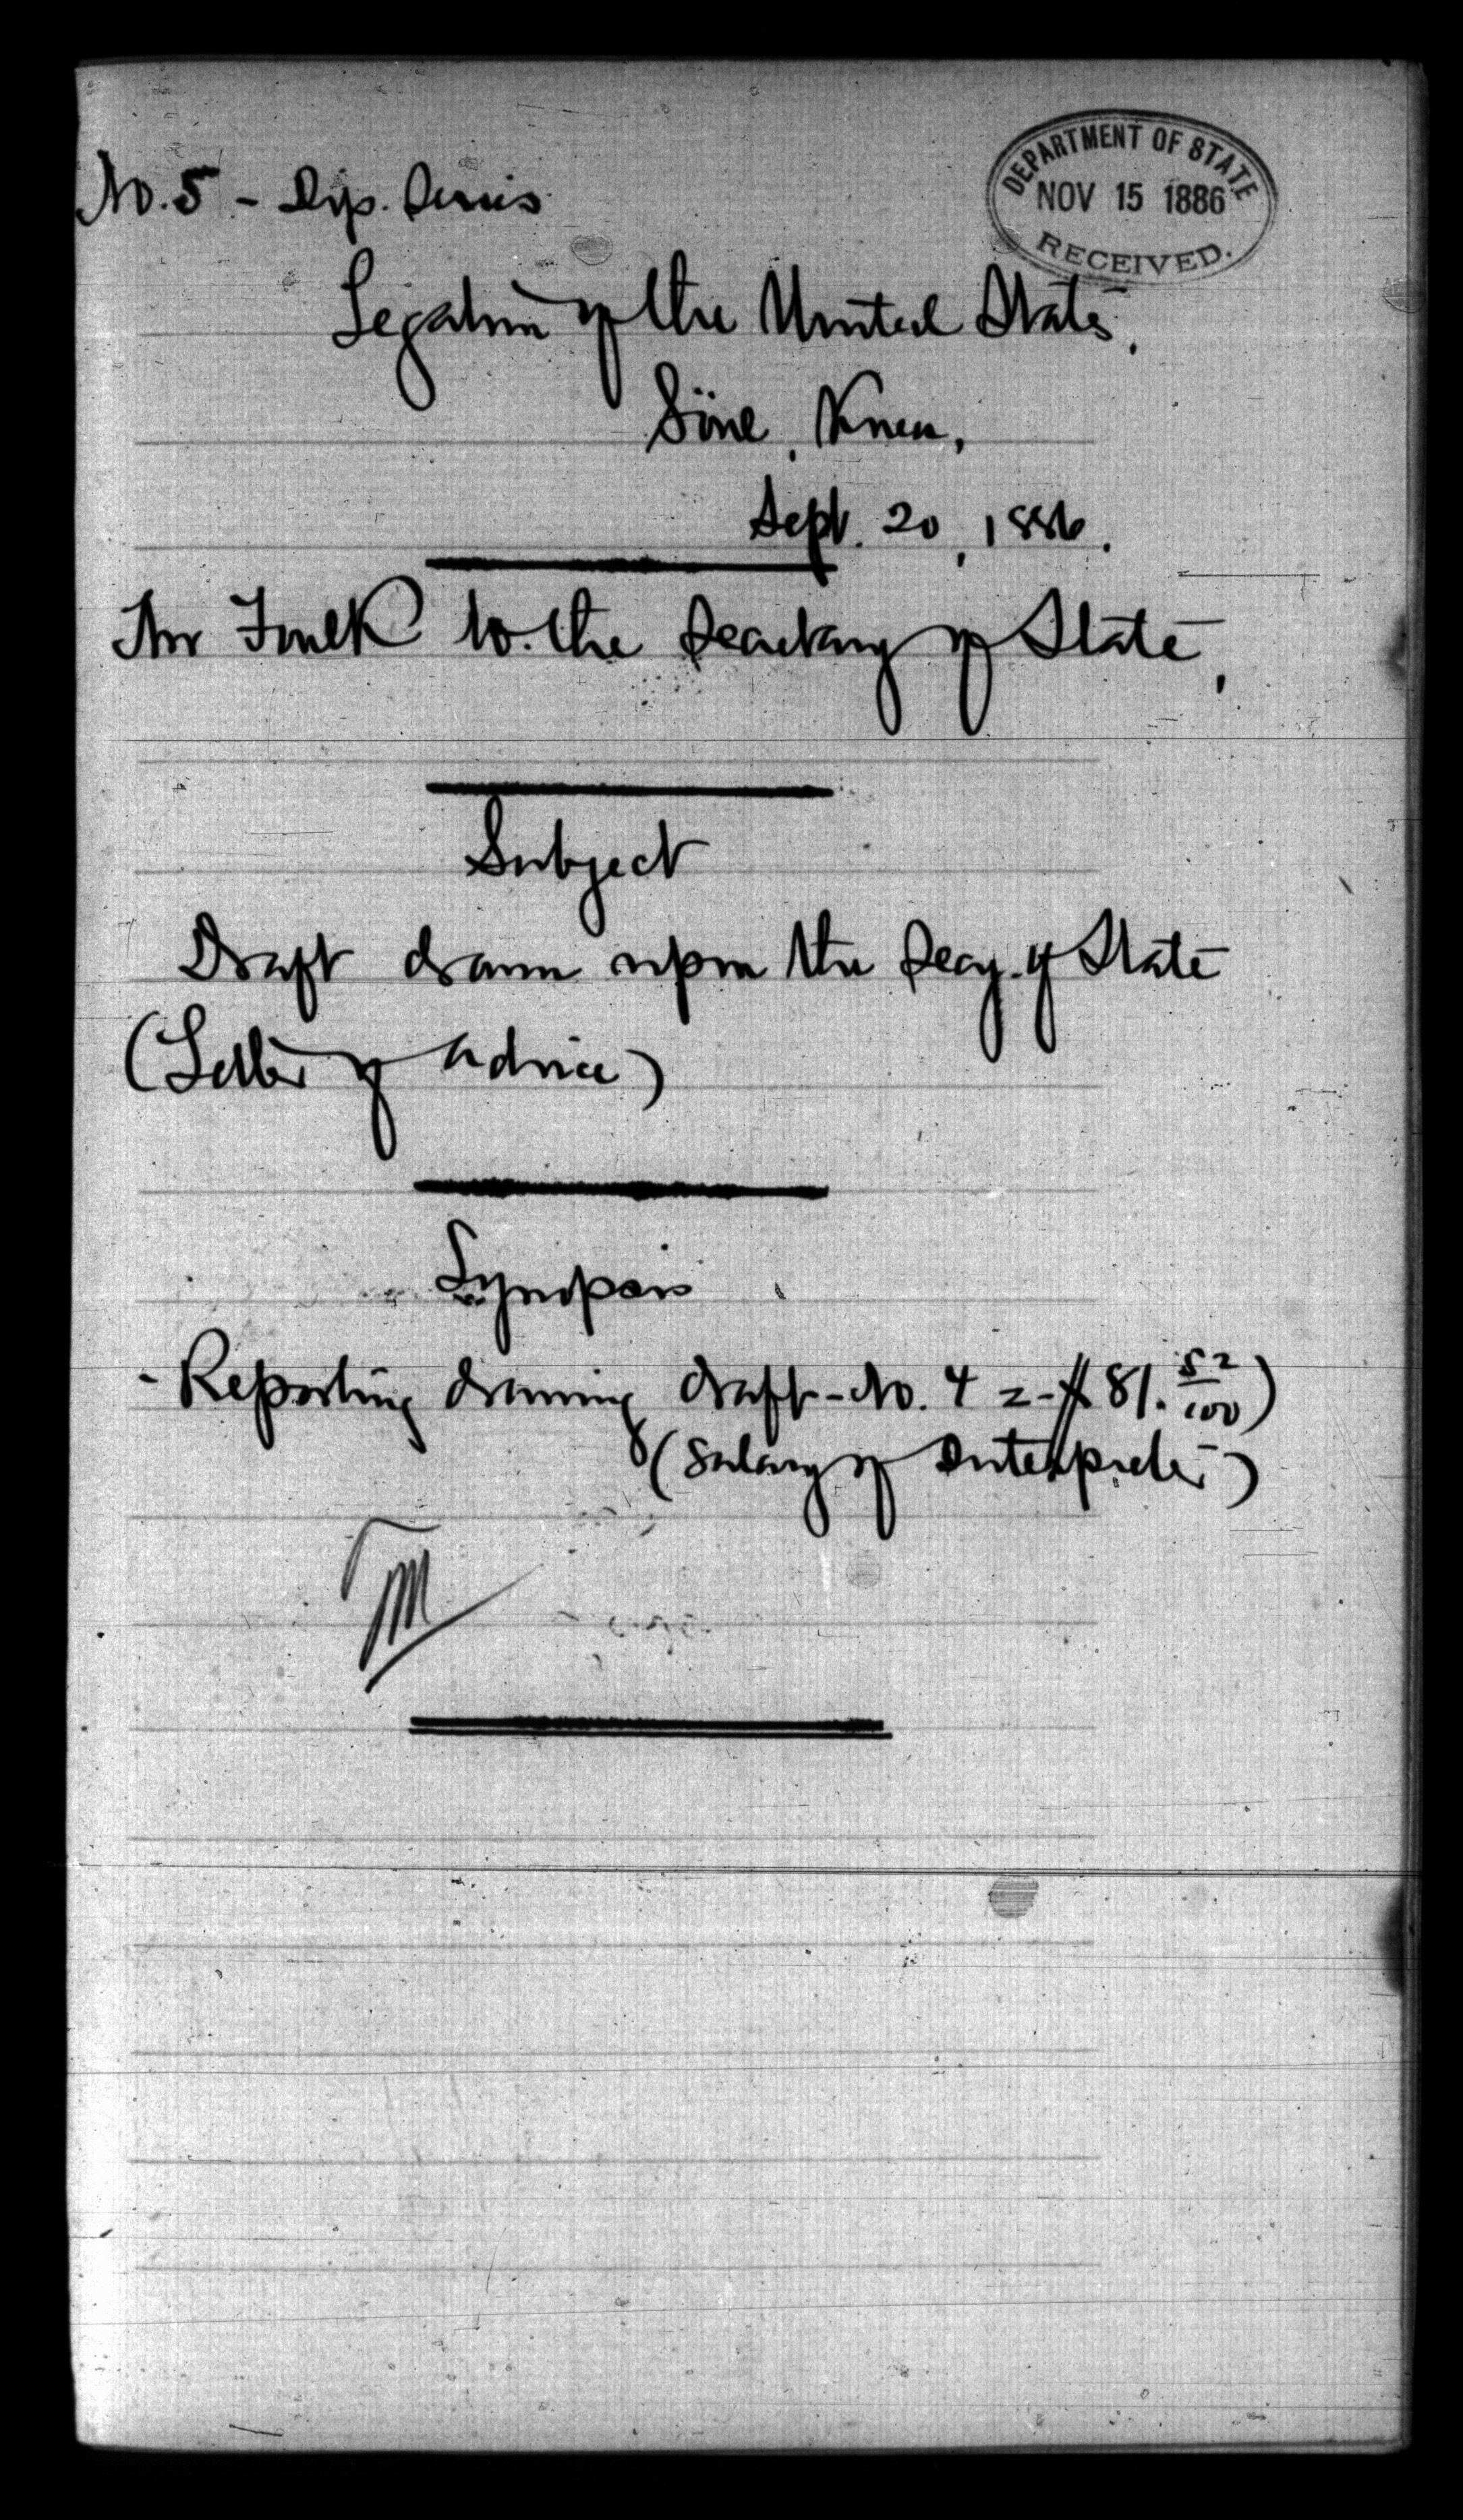 DEPARTMENT OF STATE
NOV 15 1886
RECEIVED.
No. 5 - Dip. Series
Legation of the United States,
Söul, Korea,
Sept. 20, 1886.
Mr Foulk to the Secretary of State,
Subject
Draft drawn upon the Secy. of State
(Letter of advice)
Synopsis
- Reporting drawing draft - No. 4 = $81. 52/100)
(Salary of Interpreter)